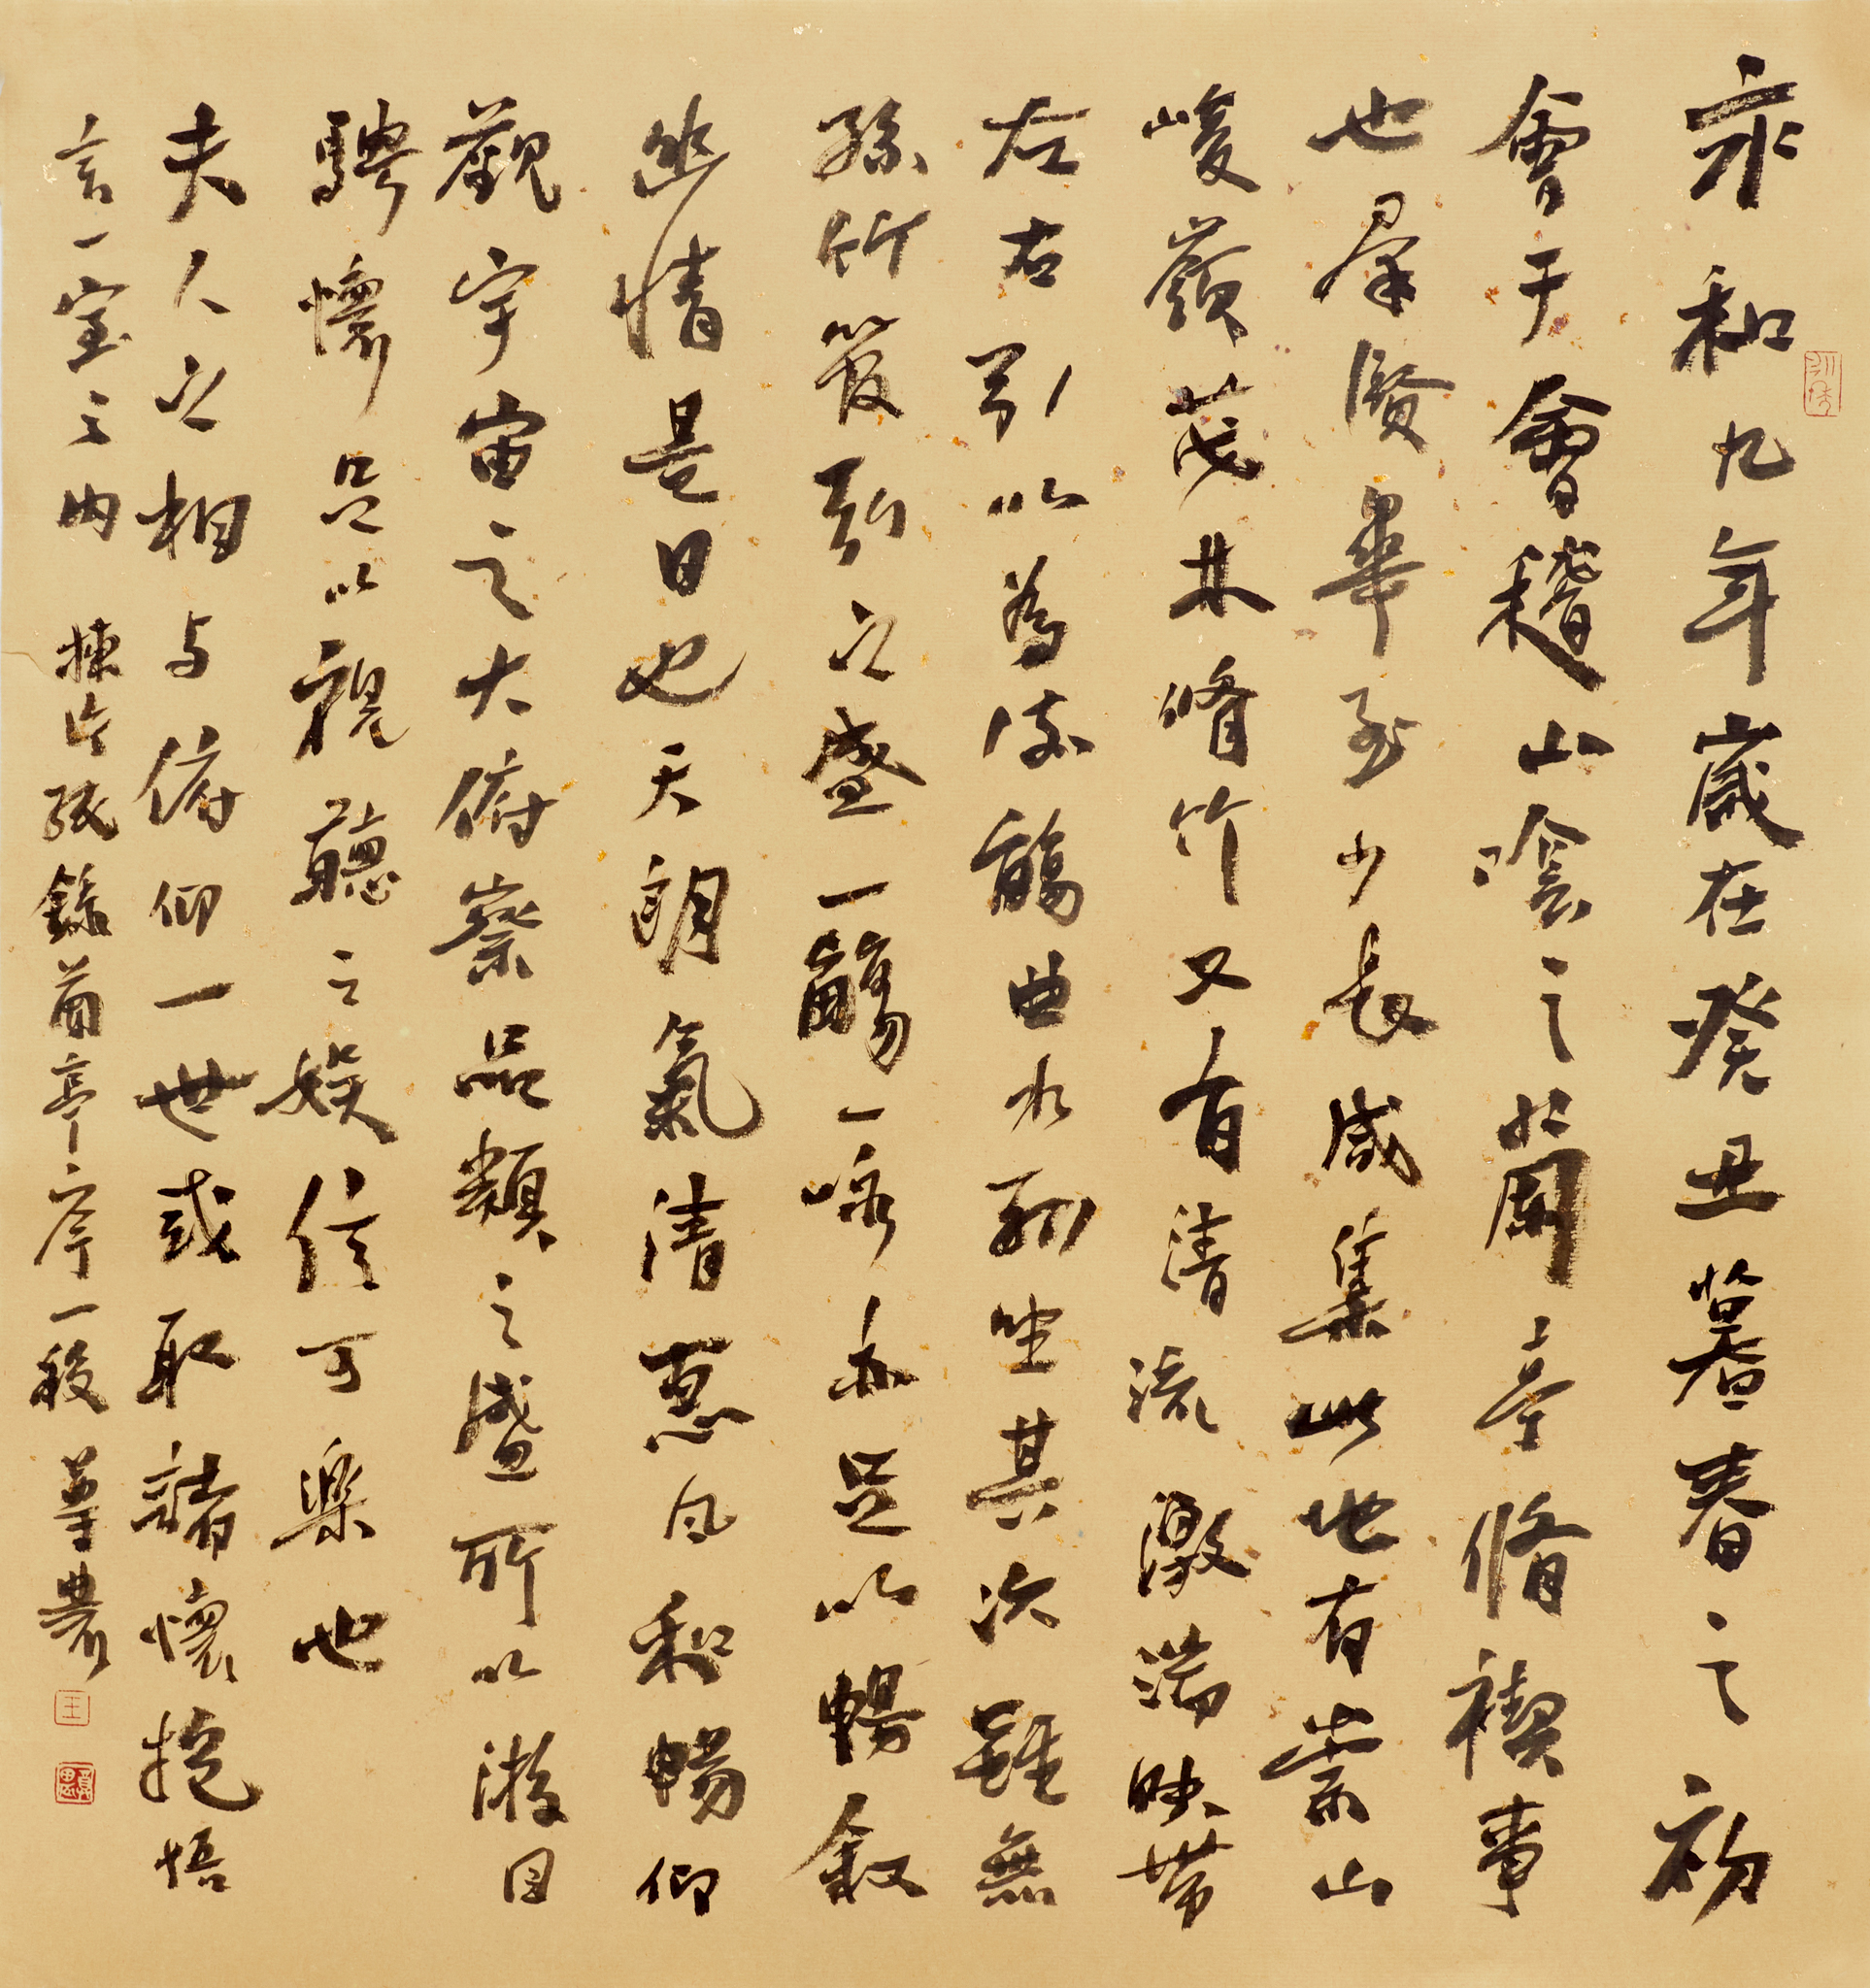 永和九年歲在癸丑暮春之初
會于會稽山陰之蘭亭脩禊事
也羣賢畢至少長咸集此地有崇山
峻嶺茂林脩竹又有清流激湍映帶
左右引以為流觴曲水列坐其次雖無
絲竹管弦之盛一觴一詠亦足以暢叙
幽情是日也天朗氣清惠風和暢仰
觀宇宙之大俯察品類之盛所以游目
騁懷足以視聽之娛信可樂也
夫人之相与俯仰一世或取諸懷抱悟
言一室之內 揀片紙錄蘭亭序一段 農
王